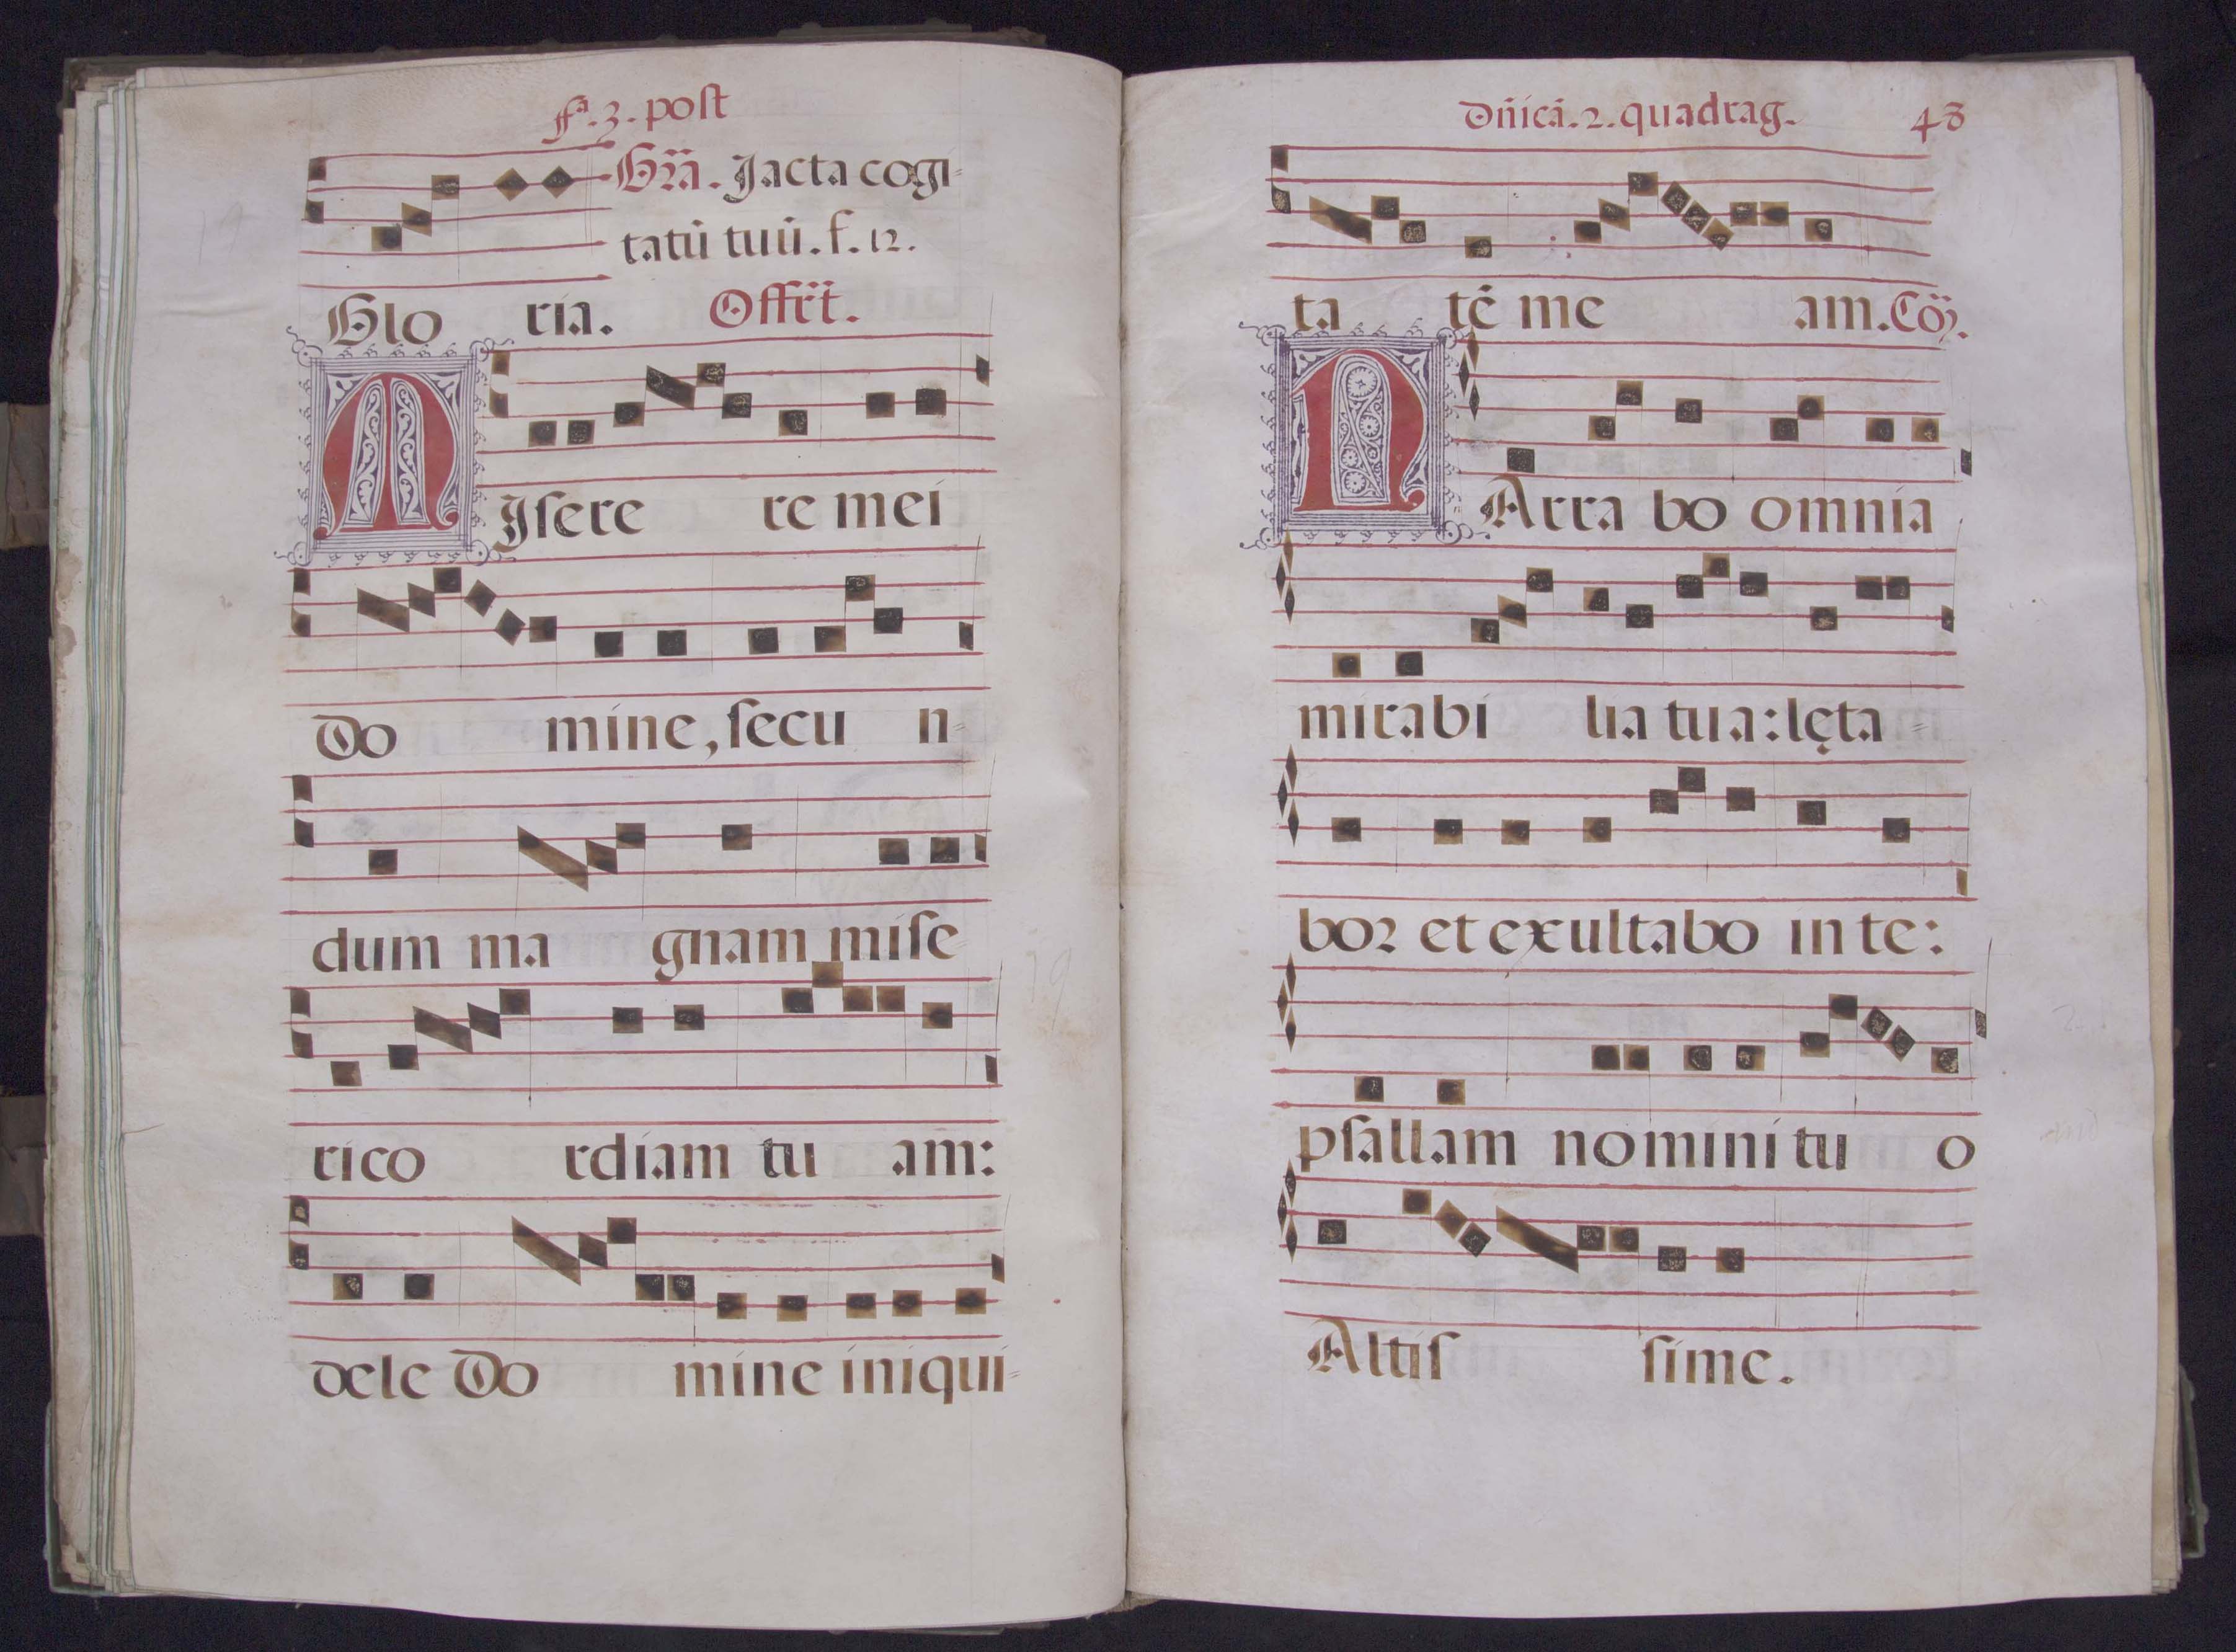 fª. 3. post
Gr̃a. Jacta cogi-
tatũ tuũ. f. 12.
Glo ria. Offr̃t.
MIsere re mei
Do mine, secu n-
dum ma gnam mise-
rico rdiam tu am:
dele Do mine iniqui-
Dñicã. 2. quadrag. 48
ta tẽ me am. Cõ.
NArra bo omnia
mirabi lia tua: lęta-
bor et exultabo in te:
psallam nomini tu o
Altis sime.